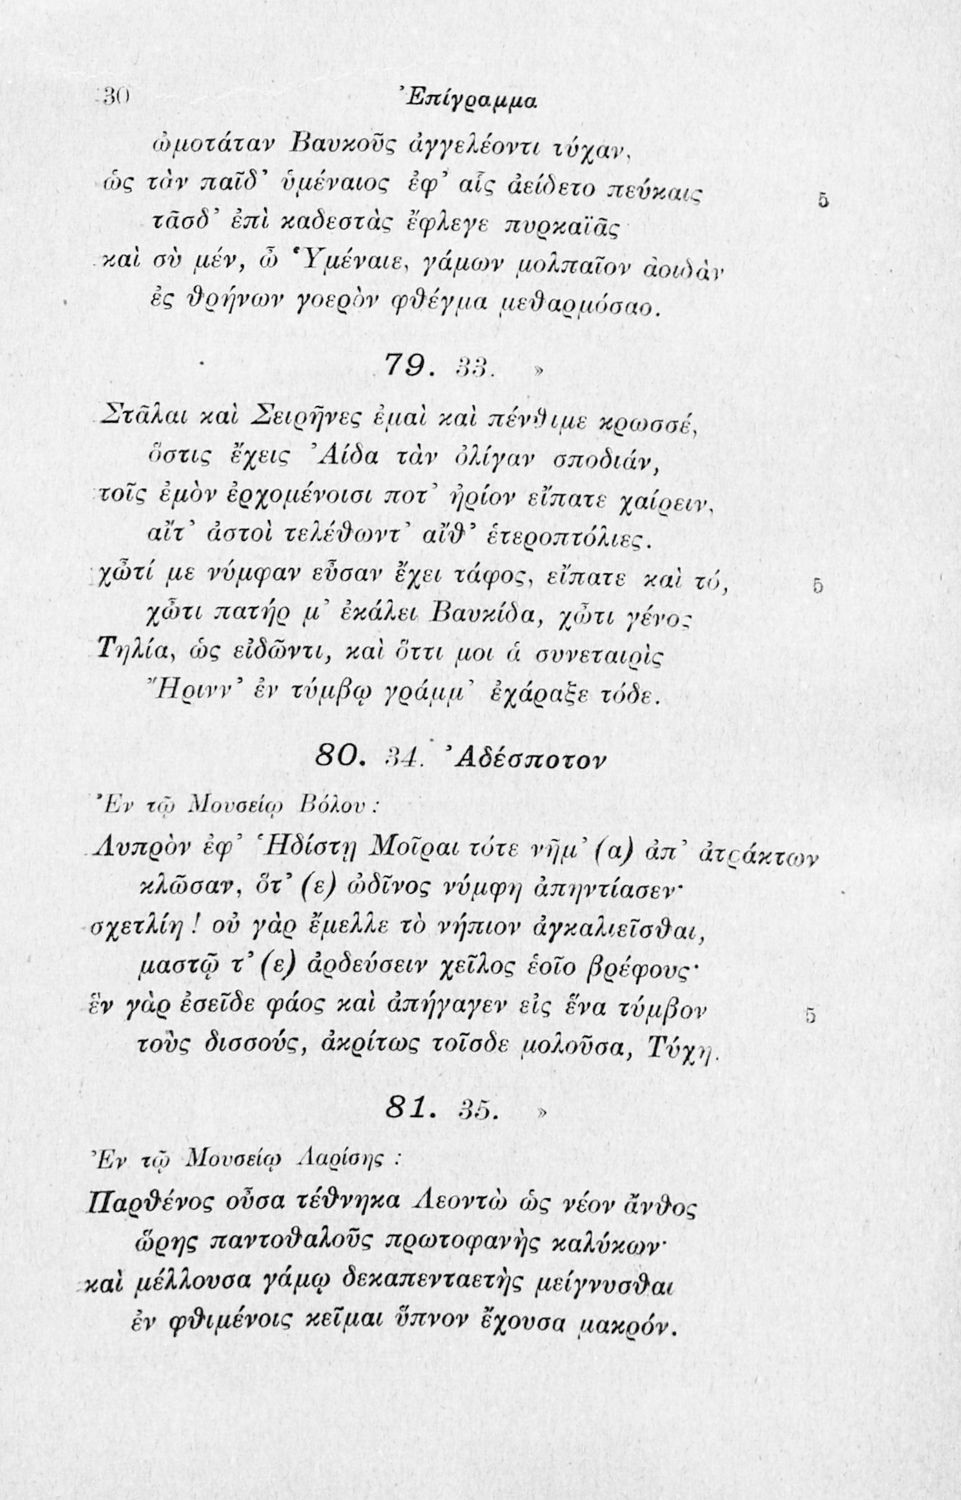 30 Ἐπίγραμμα
ὠμοτάταν Βαυκοῦς ἀγγελέοντι τύχαν,
ὡς τὰν παῖδ᾽ ὑμέναιος ἐφ᾽ αἷς ἀείδετο πεύκαις 5
τᾶσδ᾽ ἐπὶ καδεστὰς ἔφλεγε πυρκαϊᾶς
καὶ σὺ μέν, ὦ Ὑμέναιε, γάμων μολπαῖον ἀοιδὰν
ἐς θρήνων γοερὸν φθέγμα μεθαρμόσαο.
79. 33. »
Στᾶλαι καὶ Σειρῆνες ἐμαὶ καὶ πένθιμε κρωσσέ,
ὅστις ἔχεις Ἀίδα τὰν ὀλίγαν σποδιάν,
τοῖς ἐμὸν ἐρχομένοισι ποτ᾽ ἠρίον εἴπατε χαίρειν,
αἴτ᾽ ἀστοὶ τελέθωντ᾽ αἴθ᾽ ἑτεροπτόλιες.
χὦτί με νύμφαν εὖσαν ἔχει τάφος, εἴπατε καὶ τό, 5
χὦτι πατήρ μ᾽ ἐκάλει Βαυκίδα, χὦτι γένος
Τηλία, ὡς εἰδῶντι, καὶ ὅττι μοι ἁ συνεταιρὶς
Ἤρινν᾽ ἐν τύμβῳ γράμμ᾽ ἐχάραξε τόδε.
80. 34. Ἀδέσποτον
Ἐν τῷ Μουσείῳ Βόλου :
Λυπρὸν ἐφ᾽ Ἡδίστῃ Μοῖραι τότε νῆμ᾽ (α) ἀπ᾽ ἀτράκτων
κλῶσαν, ὅτ᾽ (ε) ὠδῖνος νύμφη ἀπηντίασεν·
σχετλίη ! οὐ γὰρ ἔμελλε τὸ νήπιον ἀγκαλιεῖσθαι,
μαστῷ τ᾽ (ε) ἀρδεύσειν χεῖλος ἑοῖο βρέφους·
ἓν γὰρ ἐσεῖδε φάος καὶ ἀπήγαγεν εἰς ἕνα τύμβον 5
τοὺς δισσούς, ἀκρίτως τοῖσδε μολοῦσα, Τύχη.
81. 35. »
Ἐν τῷ Μουσείῳ Λαρίσης :
Παρθένος οὖσα τέθνηκα Λεοντὼ ὡς νέον ἄνθος
ὥρης παντοθαλοῦς πρωτοφανὴς καλύκων·
καὶ μέλλουσα γάμῳ δεκαπενταετὴς μείγνυσθαι
ἐν φθιμένοις κεῖμαι ὕπνον ἔχουσα μακρόν.